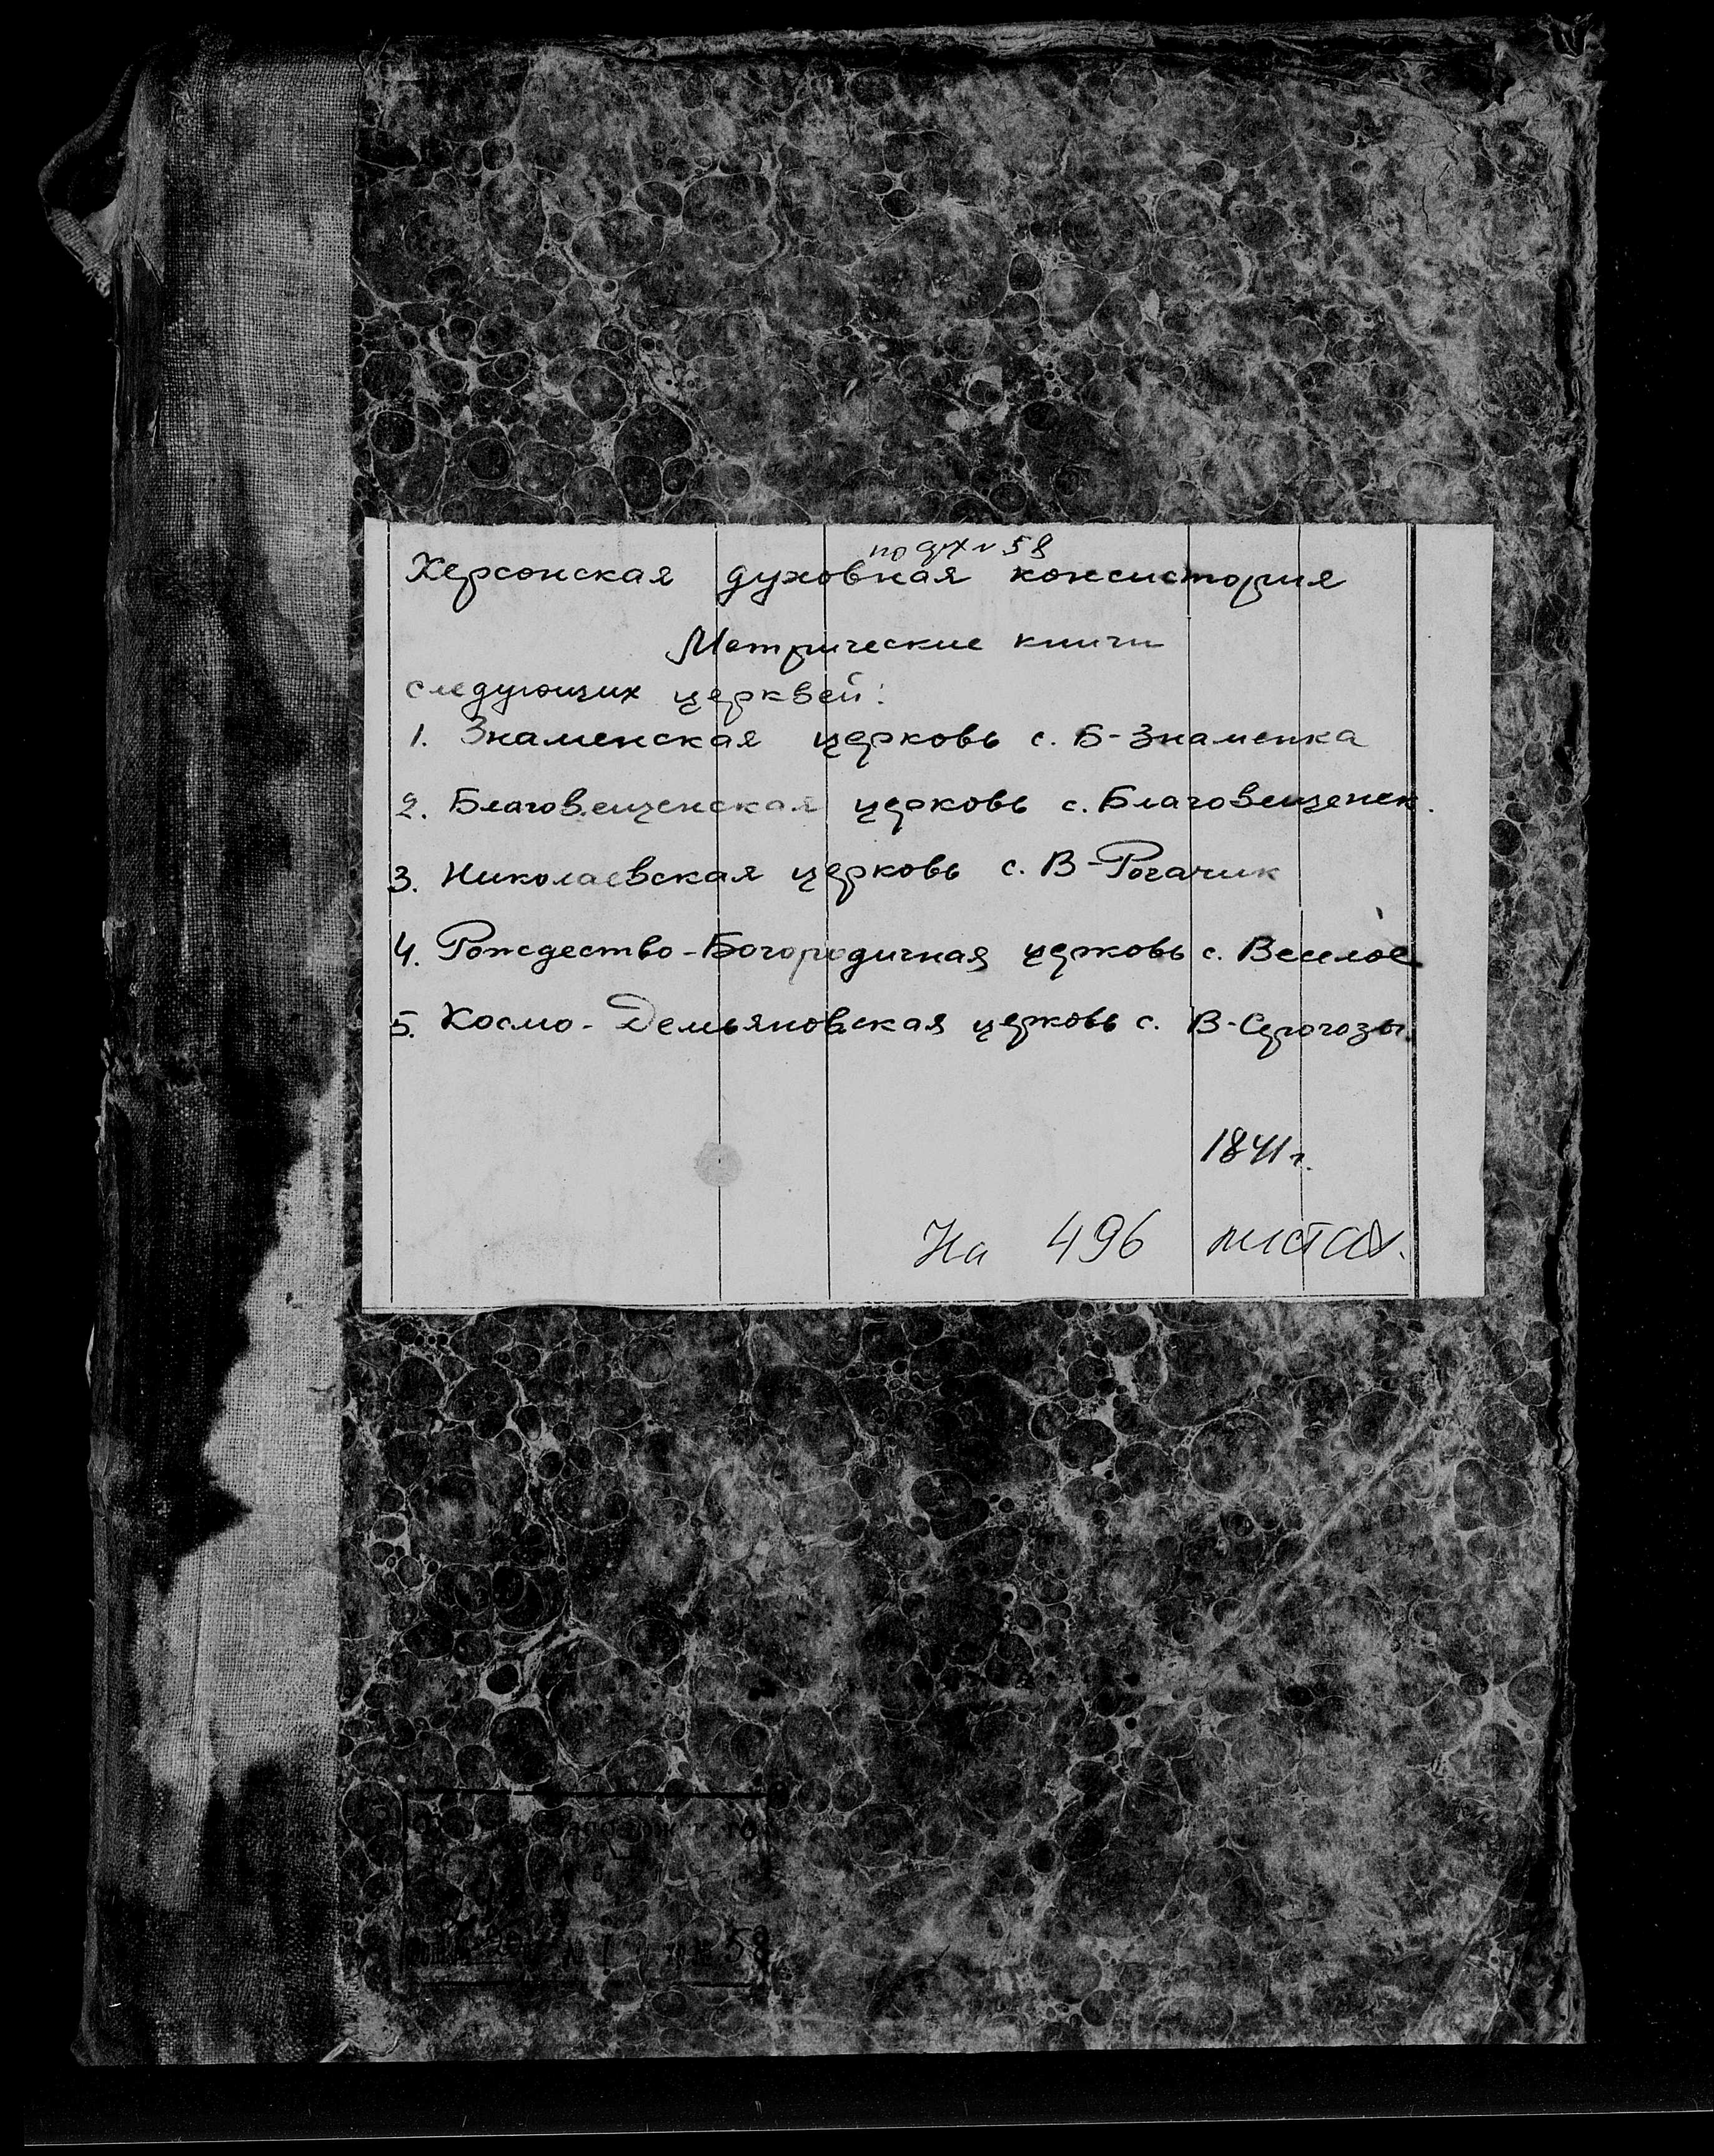 58
Херсонская духовная консистория
Метрические книги
следующих церквей:
1. Знаменская церковь с. Б-Знаменка
2. Благовещенская церковь с. Благовещенск.
3. Николаевская церковь с. В-Рогачик
4. Рождество-Богородичная церковь с. Веселое
5. Космо-Демьяновская церковь с. В-Серогозы.
1841 г.
На 496 листах.
58